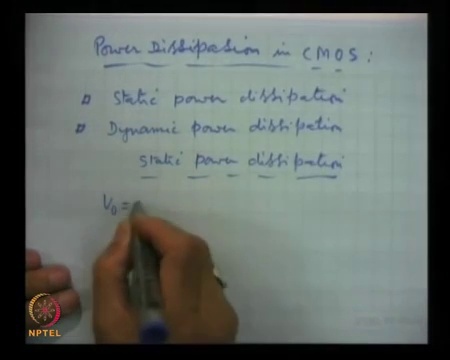 Power Dissipasion in CMOS :
Static power dissipation
Dynamic power dissipation
static power dissipation
V0 =
NPTEL